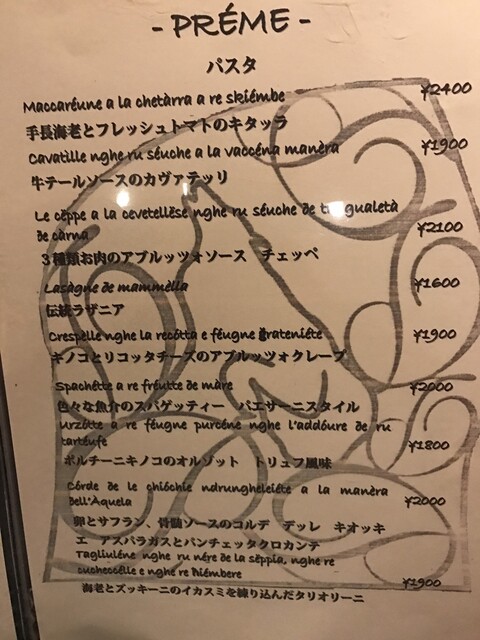 - PRÉME -
パスタ
Maccaréune a la chetàrra a re skiémbe ¥2400
手長海老とフレッシュトマトのキタッラ
Cavatille nghe ru séuche a la vaccéna manèra ¥1900
牛テールソースのカヴァテッリ
Le cëppe a la cevetellëse nghe ru séuche de tre gualetà
de càrna ¥2100
３種類お肉のアブルッツォソース チェッペ
Lasàgne de mammèlla ¥1600
伝統ラザニア
Crespèlle nghe la recótta e féugne grateniéte ¥1900
キノコとリコッタチーズのアブルッツォクレープ
Spachètte a re fréutte de màre ¥2000
色々な魚介のスパゲッティー パエサーニスタイル
Urzótte a re féugne purcéne nghe l'addóure de ru
tartéufe ¥1800
ポルチーニキノコのオルゾット トリュフ風味
Córde de le chióchie ndrungheleiéte a la manèra
Dell'Àquela ¥2000
卵とサフラン、骨髄ソースのコルデ デッレ キオッキ
エ アスパラガスとパンチェッタクロカンテ
Tagliuléne nghe ru nére de la sëppia, nghe re
cucheccélle e nghe re ñiémbere ¥1900
海老とズッキーニのイカスミを練り込んだタリオリーニ